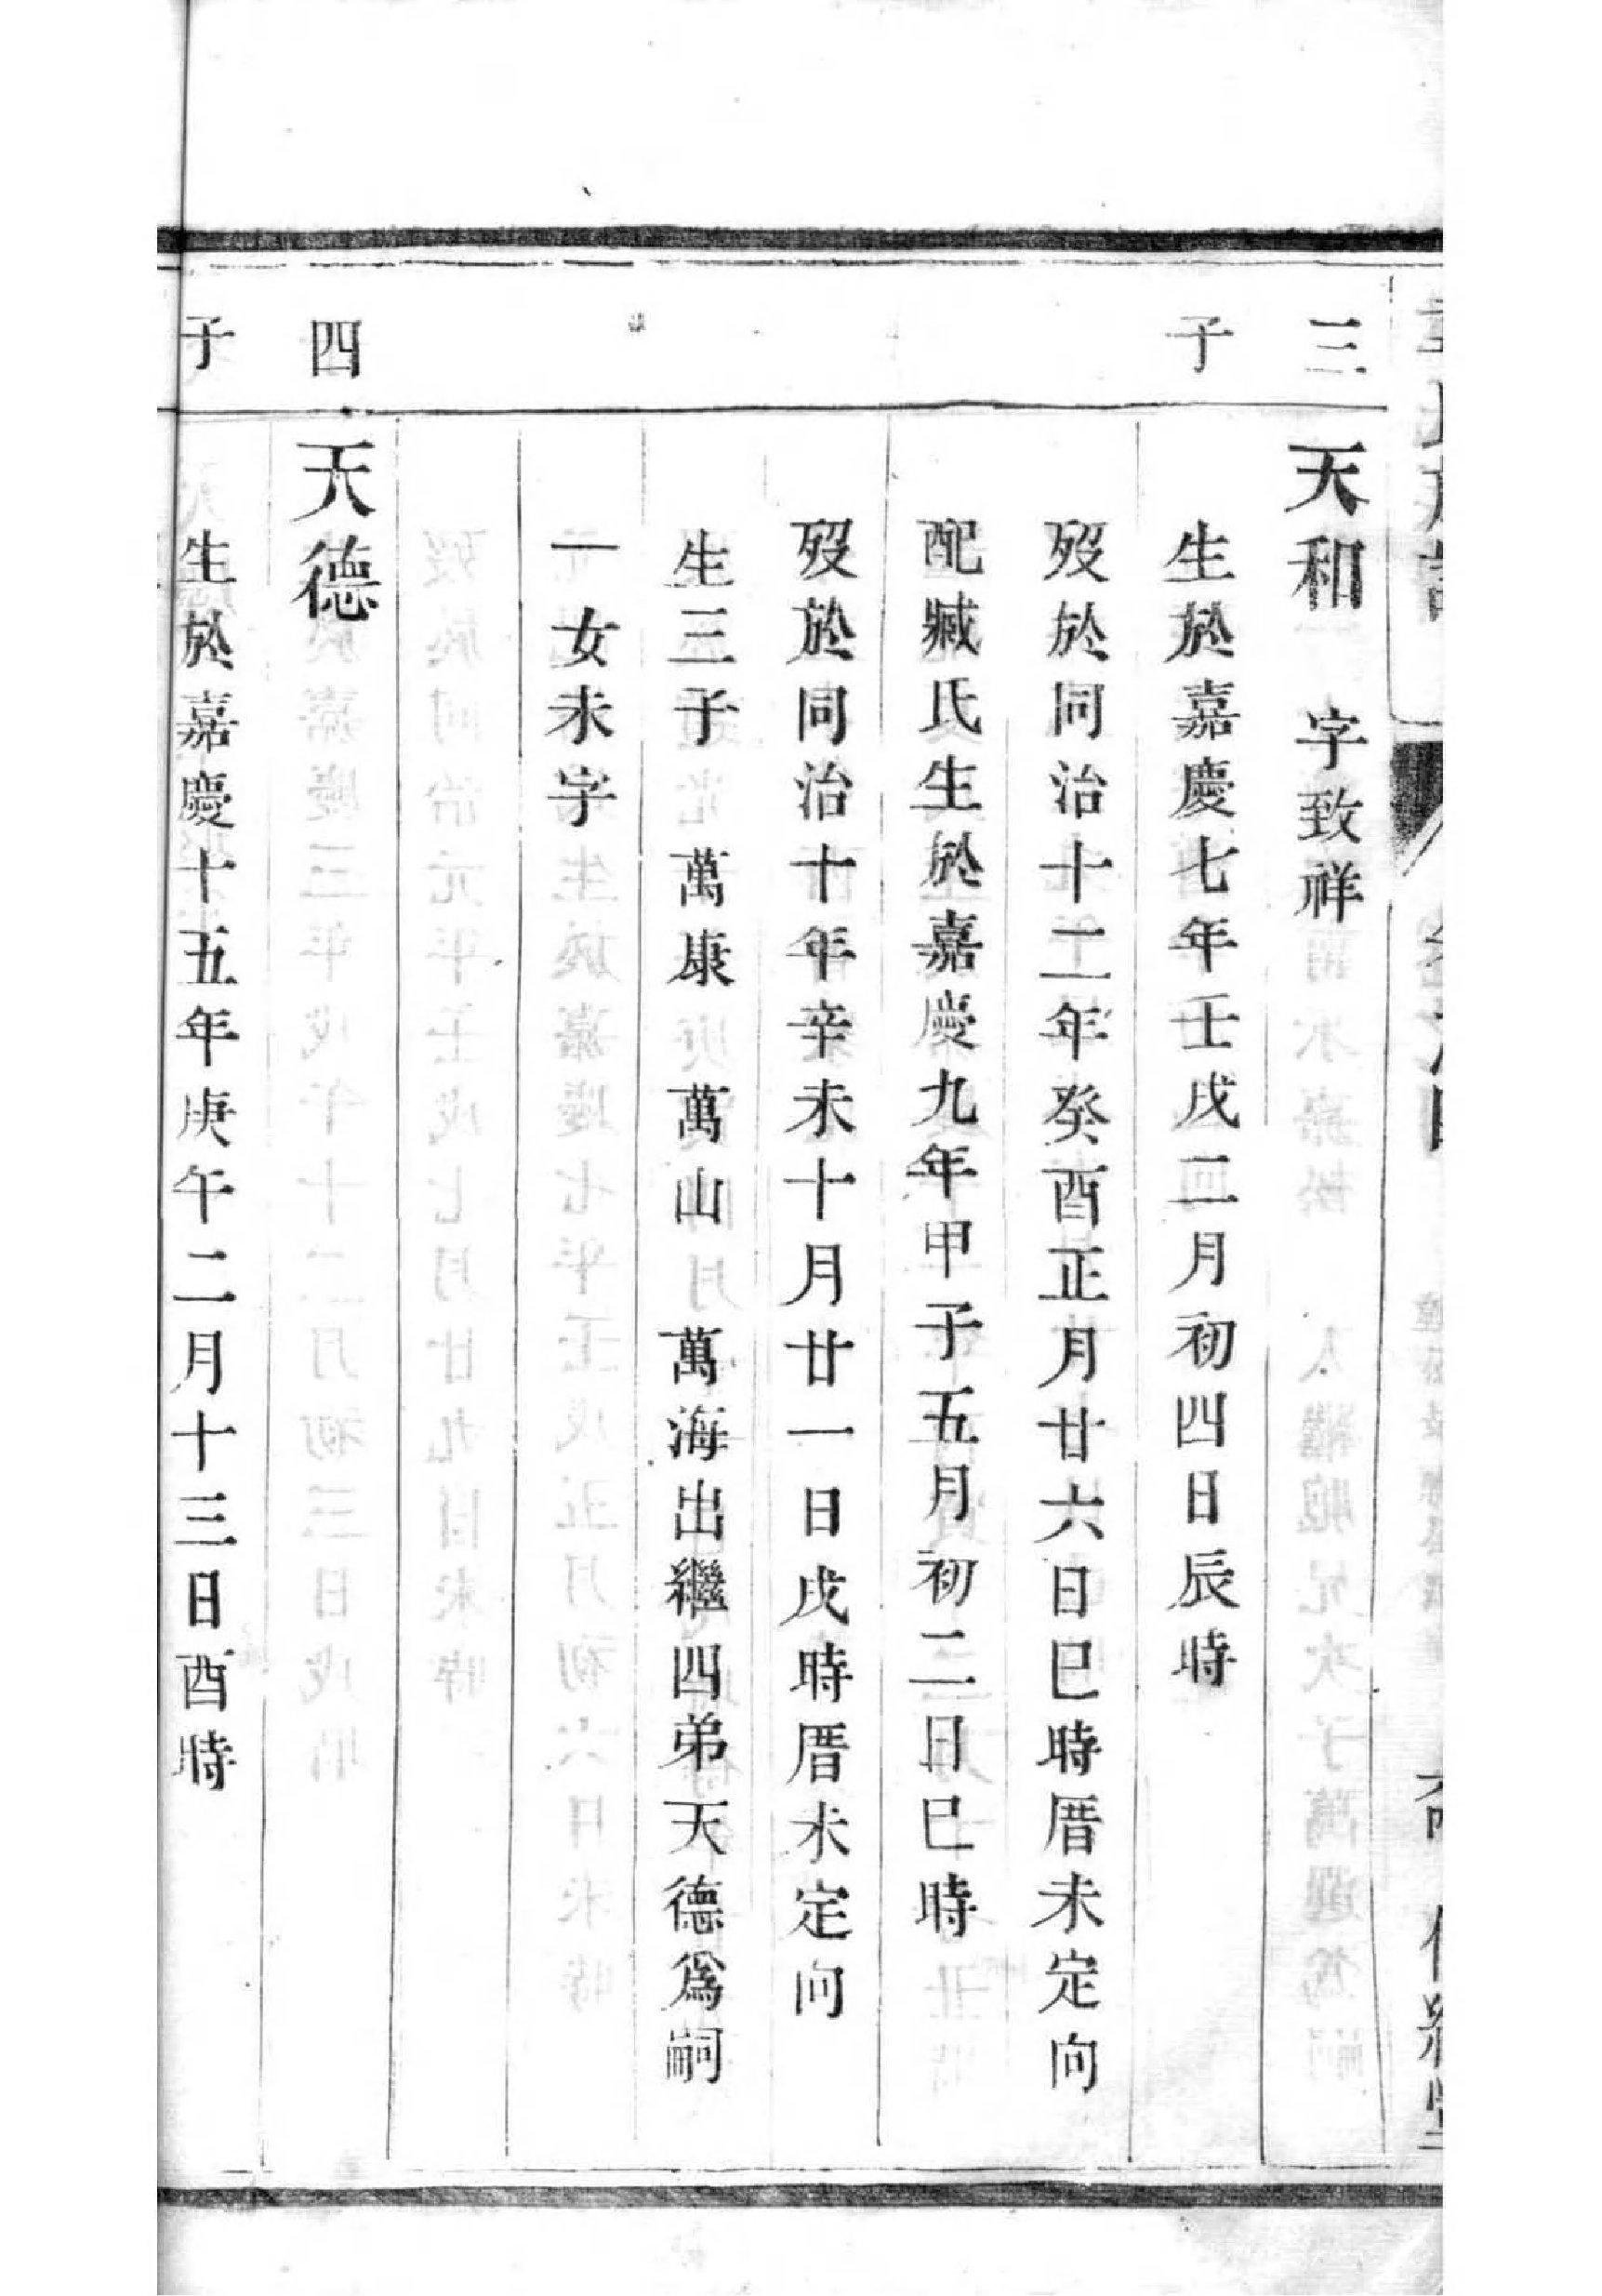 三子
天和 字致祥
生於嘉慶七年壬戌二月初四日辰時
歿於同治十二年癸酉正月廿六日巳時厝未定向
配臧氏生於嘉慶九年甲子五月初二日巳時
歿於同治十年辛未十月廿一日戌時厝未定向
生三子 萬康 萬山 萬海出繼四弟天德爲嗣
一女未字
四子
天德
生於嘉慶十五年庚午二月十三日酉時